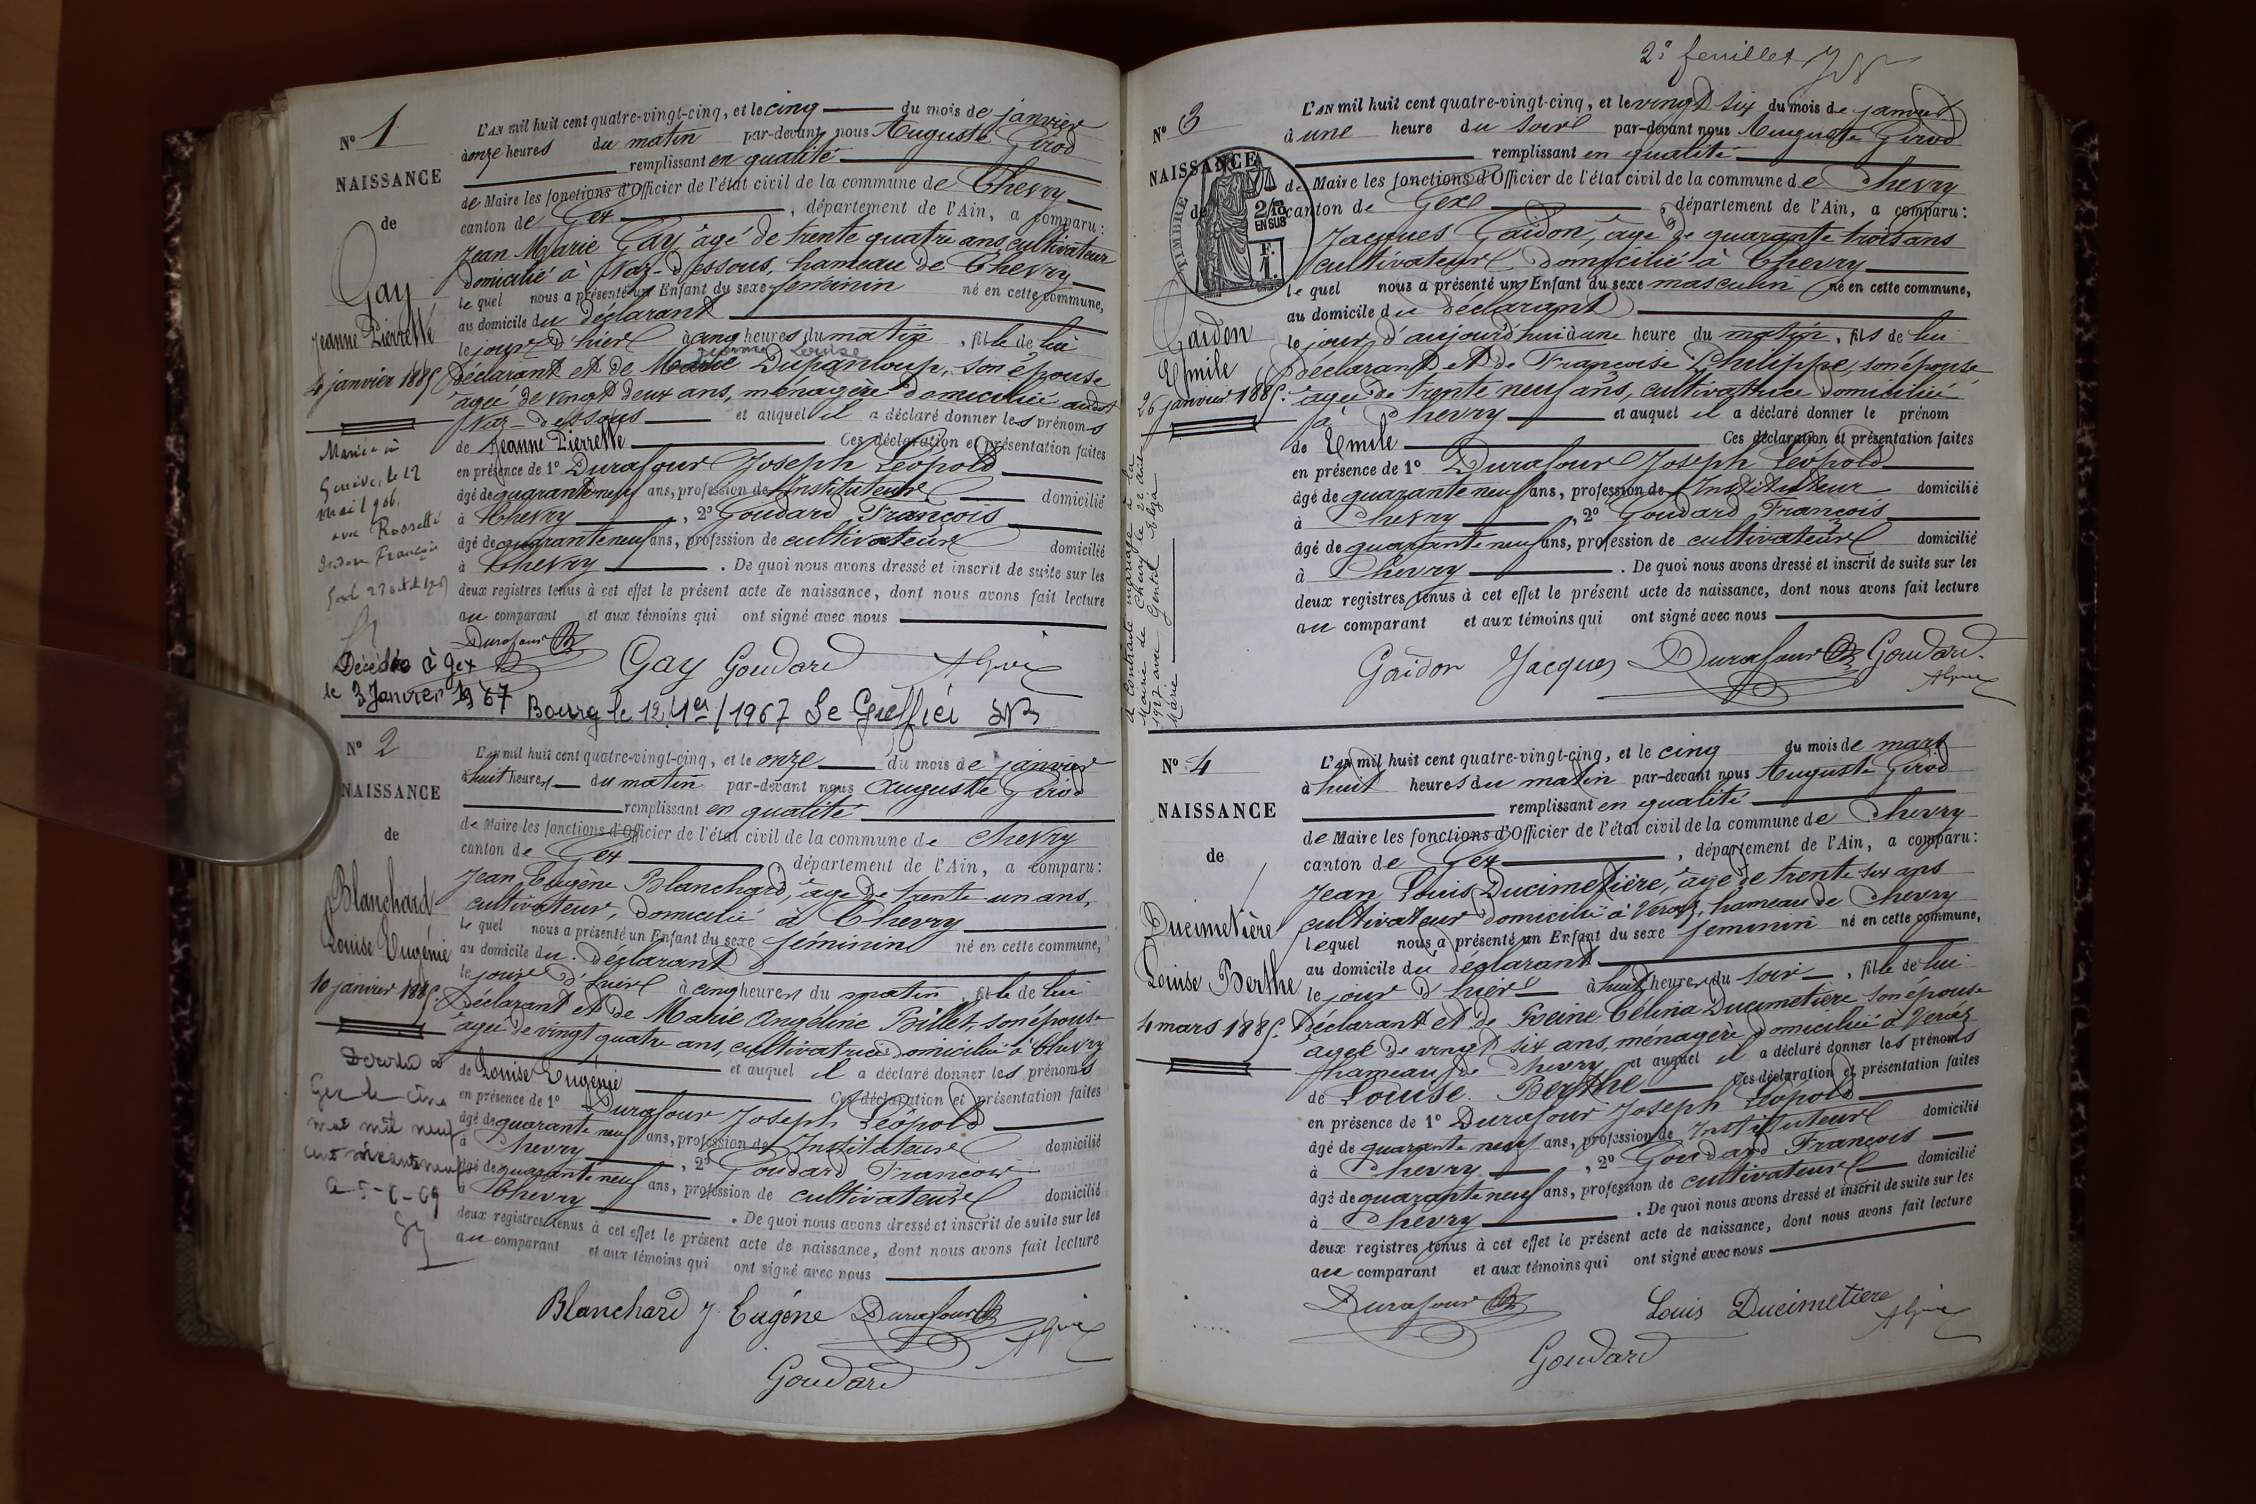 N° 1
NAISSANCE
de
Gay
Jeanne Pierrette
4 janvier 1885.
Mariée à
Genève, le 12
mai 1906.
avec Rossetti
François
Décédée à Gex
le 3 Janvier 1967
L'AN mil huit cent quatre-vingt-cinq, et le cinq du mois de janvier
à onze heures du matin par-devant nous Auguste Girod
remplissant en qualité
de Maire les fonctions d'Officier de l'état civil de la commune de Chevry
canton de Gex, département de l'Ain, a comparu:
Jean Marie Gay âgé de trente quatre ans, cultivateur
domicilié à Naz-dessous, hameau de Chevry
le quel nous a présenté un Enfant du sexe féminin né en cette commune,
au domicile du déclarant
le jour d'hier à cinq heures du matin, fille de lui
jeanne Louise
déclarant et de Marie Dupanloup, son épouse
âgée de vingt deux ans, ménagère domiciliée audit
Naz-dessous et auquel il a déclaré donner les prénoms
de Jeanne Pierrette Ces déclaration et présentation faites
en présence de 1° Durafour Joseph Léopold
âgé de quarante neuf ans, profession de Instituteur domicilié
à Chevry, 2° Goudard François
âgé de quarante neuf ans, profession de cultivateur domicilié
à Chevry. De quoi nous avons dressé et inscrit de suite sur les
deux registres tenus à cet effet le présent acte de naissance, dont nous avons fait lecture
au comparant et aux témoins qui ont signé avec nous
Durafour Gay Goudard A Girod
Bourg le 12 1er/1967 Le Greffier
N° 2
NAISSANCE
de
Blanchard
Louise Eugénie
10 janvier 1885.
Décédée à
Gex le cinq
mai mil neuf
cent soixante neuf
L'AN mil huit cent quatre-vingt-cinq, et le onze du mois de janvier
à huit heures du matin par-devant nous Auguste Girod
remplissant en qualité
de Maire les fonctions d'Officier de l'état civil de la commune de Chevry
canton de Gex département de l'Ain, a comparu:
Jean Eugène Blanchard, âgé de trente un ans,
cultivateur, domicilié à Chevry
le quel nous a présenté un Enfant du sexe féminin né en cette commune,
au domicile du déclarant
le jour d'hier à cinq heures du matin fille de lui
déclarant et de Marie Angéline Billet, son épouse
âgée de vingt quatre ans, cultivatrice domiciliée à Chevry
et auquel il a déclaré donner les prénoms
de Louise Eugénie Ces déclaration et présentation faites
en présence de 1° Durafour Joseph Léopold
âgé de quarante neuf ans, profession de Instituteur domicilié
à Chevry, 2° Goudard François
âgé de quarante neuf ans, profession de cultivateur domicilié
à Chevry. De quoi nous avons dressé et inscrit de suite sur les
deux registres tenus à cet effet le présent acte de naissance, dont nous avons fait lecture
au comparant et aux témoins qui ont signé avec nous
Blanchard J. Eugéne Durafour A Girod
Goudard
2e feuillet
N° 3
NAISSANCE
de
TIMBRE
2/10
EN SUS
F.
1.
Gaidon
Emile
26 janvier 1885.
A contracté mariage à la
Mairie de Chevry le 22 avril
1927 avec Gentil Eliza
Marie
L'AN mil huit cent quatre-vingt-cinq, et le vingt six du mois de janvier
à une heure du soir par-devant nous Auguste Girod
remplissant en qualité
de Maire les fonctions d'Officier de l'état civil de la commune de Chevry
canton de Gex, département de l'Ain, a comparu:
Jacques Gaidon, âgé de quarante trois ans
cultivateur domicilié à Chevry
le quel nous a présenté un Enfant du sexe masculin né en cette commune,
au domicile du déclarant
le jour d'aujourd'hui à une heure du matin, fils de lui
déclarant et de Françoise Philippe, son épouse
âgée de trente neuf ans, cultivatrice domiciliée
à Chevry et auquel il a déclaré donner le prénom
de Emile Ces déclaration et présentation faites
en présence de 1° Durafour Joseph Léopold
âgé de quarante neuf ans, profession de Instituteur domicilié
à Chevry, 2° Goudard François
âgé de quarante neuf ans, profession de cultivateur domicilié
à Chevry. De quoi nous avons dressé et inscrit de suite sur les
deux registres tenus à cet effet le présent acte de naissance, dont nous avons fait lecture
au comparant et aux témoins qui ont signé avec nous
Gaidon Jacques Durafour Goudard.
A Girod
N° 4
NAISSANCE
de
Ducimetière
Louise Berthe
4 mars 1885.
L'AN mil huit cent quatre-vingt-cinq, et le cinq du mois de mars
à huit heures du matin par-devant nous Auguste Girod
remplissant en qualité
de Maire les fonctions d'Officier de l'état civil de la commune de Chevry
canton de Gex, département de l'Ain, a comparu:
Jean Louis Ducimetière, âgé de trente six ans
cultivateur domicilié à Véraz, hameau de Chevry
lequel nous a présenté un Enfant du sexe féminin né en cette commune,
au domicile du déclarant
le jour d'hier à huit heures du soir, fille de lui
déclarant et de Reine Célina Ducimetière son épouse
âgée de vingt six ans, ménagère domiciliée à Véraz
hameau de Chevry et auquel il a déclaré donner les prénoms
de Louise Berthe Ces déclaration et présentation faites
en présence de 1° Durafour Joseph Léopold
âgé de quarante neuf ans, profession de Instituteur domicilié
à Chevry, 2° Goudard François
âgé de quarante neuf ans, profession de cultivateur domicilié
à Chevry. De quoi nous avons dressé et inscrit de suite sur les
deux registres tenus à cet effet le présent acte de naissance, dont nous avons fait lecture
au comparant et aux témoins qui ont signé avec nous
Durafour Louis Ducimetiere A Girod
Goudard